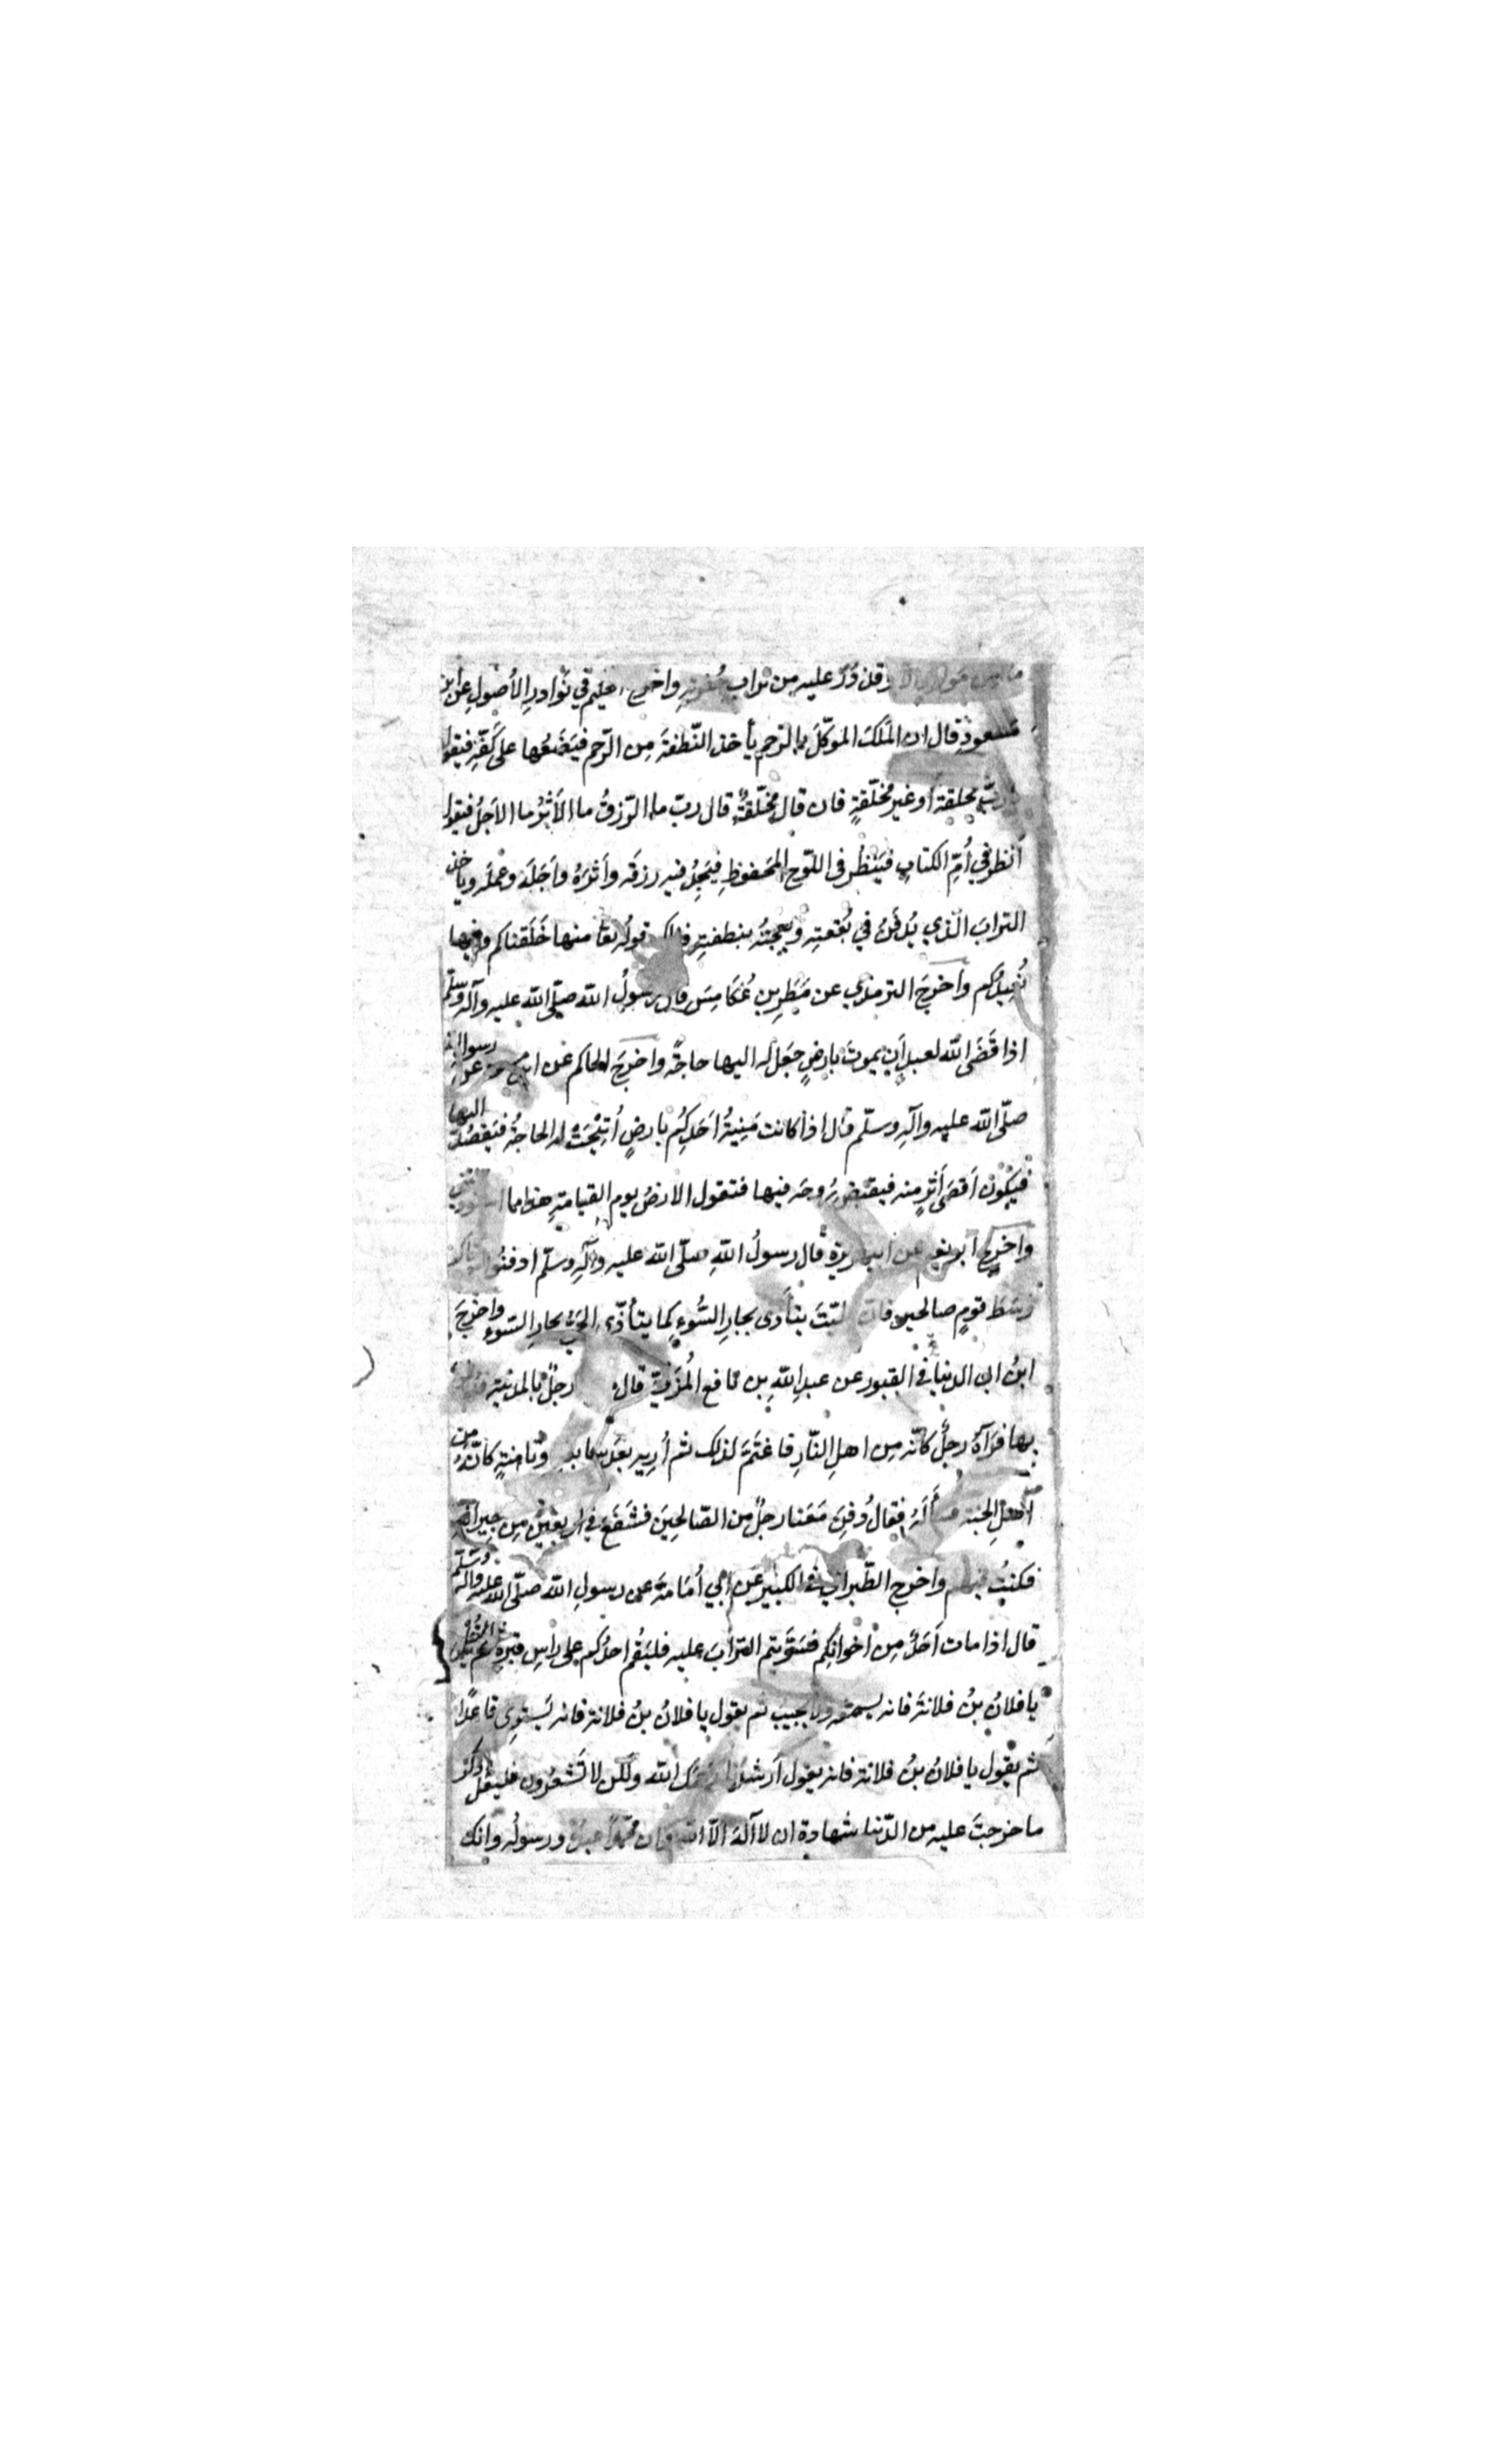 ما من مولود الا وقد ذُرّ عليه من تراب حُفرته واخرج الحكيم في نَوادرِ الأصولِ عن ابن
مَسعودٍ قال ان المَلَكَ الموكّلَ بالرّحمِ يأخذ النّطفةَ مِن الرّحم فيَضَعُها على كَفّه فيقول
يا ربّ مخلقةٌ أو غير مُخَلّقةٍ فان قال مُخَلّقةٌ قال ربّ ما الرّزقُ ما الأَثرُ ما الاَجلُ فيقول
اُنظر في أُمِّ الكتابِ فيَنظُر فى اللّوحِ المَحفوظِ فيَجِدُ فيه رزقَه واَثَرَهُ واَجَلَه وعَملَه وياخذ
الترابَ الّذي يُدفَنُ في بُقعتِه ويعجنُه بنطفتِه فذلك قولُه تعا منها خَلَقناكم وفيها
نُعيدُكم واَخرجَ الترمذي عن مَطَرِ بن عُكَامِسَ قال رسولُ الله صلّى الله عليه وآله وسلّم
اذا قَضَى اللّه لعبدٍ اَن يموتَ بارضٍ جَعَل له اليها حاجةً واخرجَ الحاكم عن ابن عن رسول الله
صلّى اللّه عليه وآلهِ وسلّم قال اذا كانت مَنِيّةُ اَحَدِكُم بارضٍ أُتِيحَتْ له الحاجةُ فيَقصُدُ اليها
فيَكون اَقصَى اَثرٍ منه فيقبض رُوحَه فيها فتقول الارضُ يوم القيامةِ هذا ما استودعتني
واخرج ابو نعيم عن ابي هريرة قال رسولُ اللّهِ صلّى اللّه عليه وآلهِ وسلّم ادفنُوا موتاكم
وَسَطَ قومٍ صالحين فان الميّتَ يتأذى بجارِ السُّوءِ كما يتأذّى الحيُّ بجارِ السّوءِ واخرجَ
ابنُ ابى الدنيا في القبور عن عبدِ اللهِ بن نافع المُزَنيّ قال رجلٌ بالمدينة فدُفن
بها فرَآهُ رجلٌ كانّه مِن اهلِ النّارِ فاغتَمَّ لذلك ثم أُرِيه بعَد سابعةٍ وثامنةٍ كانّهُ من
اَهلِ الجنة فسأَلَهُ فقال دُفِنَ مَعَنا رجلٌ من الصّالحِينَ فشَفَعَ في اربعينَ مِن جيرانِه
فكنتُ فيهم واخرج الطّبرانى فى الكبير عن ابي أُمَامةَ عن رسولِ اللّه صلّى اللّه عليه وآله وسلّم
قال اذا مات اَحَدٌ مِن اخوانِكم فسَوَّيتم التّرابَ عليه فليَقُم احدُكم على راسِ قبرِهِ ثم ليقل
يا فلانُ بنُ فلانةَ فانه يسمعُه ولا يجيبَ ثم يقول يا فلانُ بنُ فلانة فانه يَستوِى قاعدًا
ثم يقول يا فلانُ بنُ فلانة فانه يقول اَرشِدنا رَحمك الله ولكن لا تَشعُرون فليقل اذكر
ما خرجتَ عليه من الدّنيا شهادة ان لا اله الّا الله وان محمّداً عبدُه ورسولُه وانك